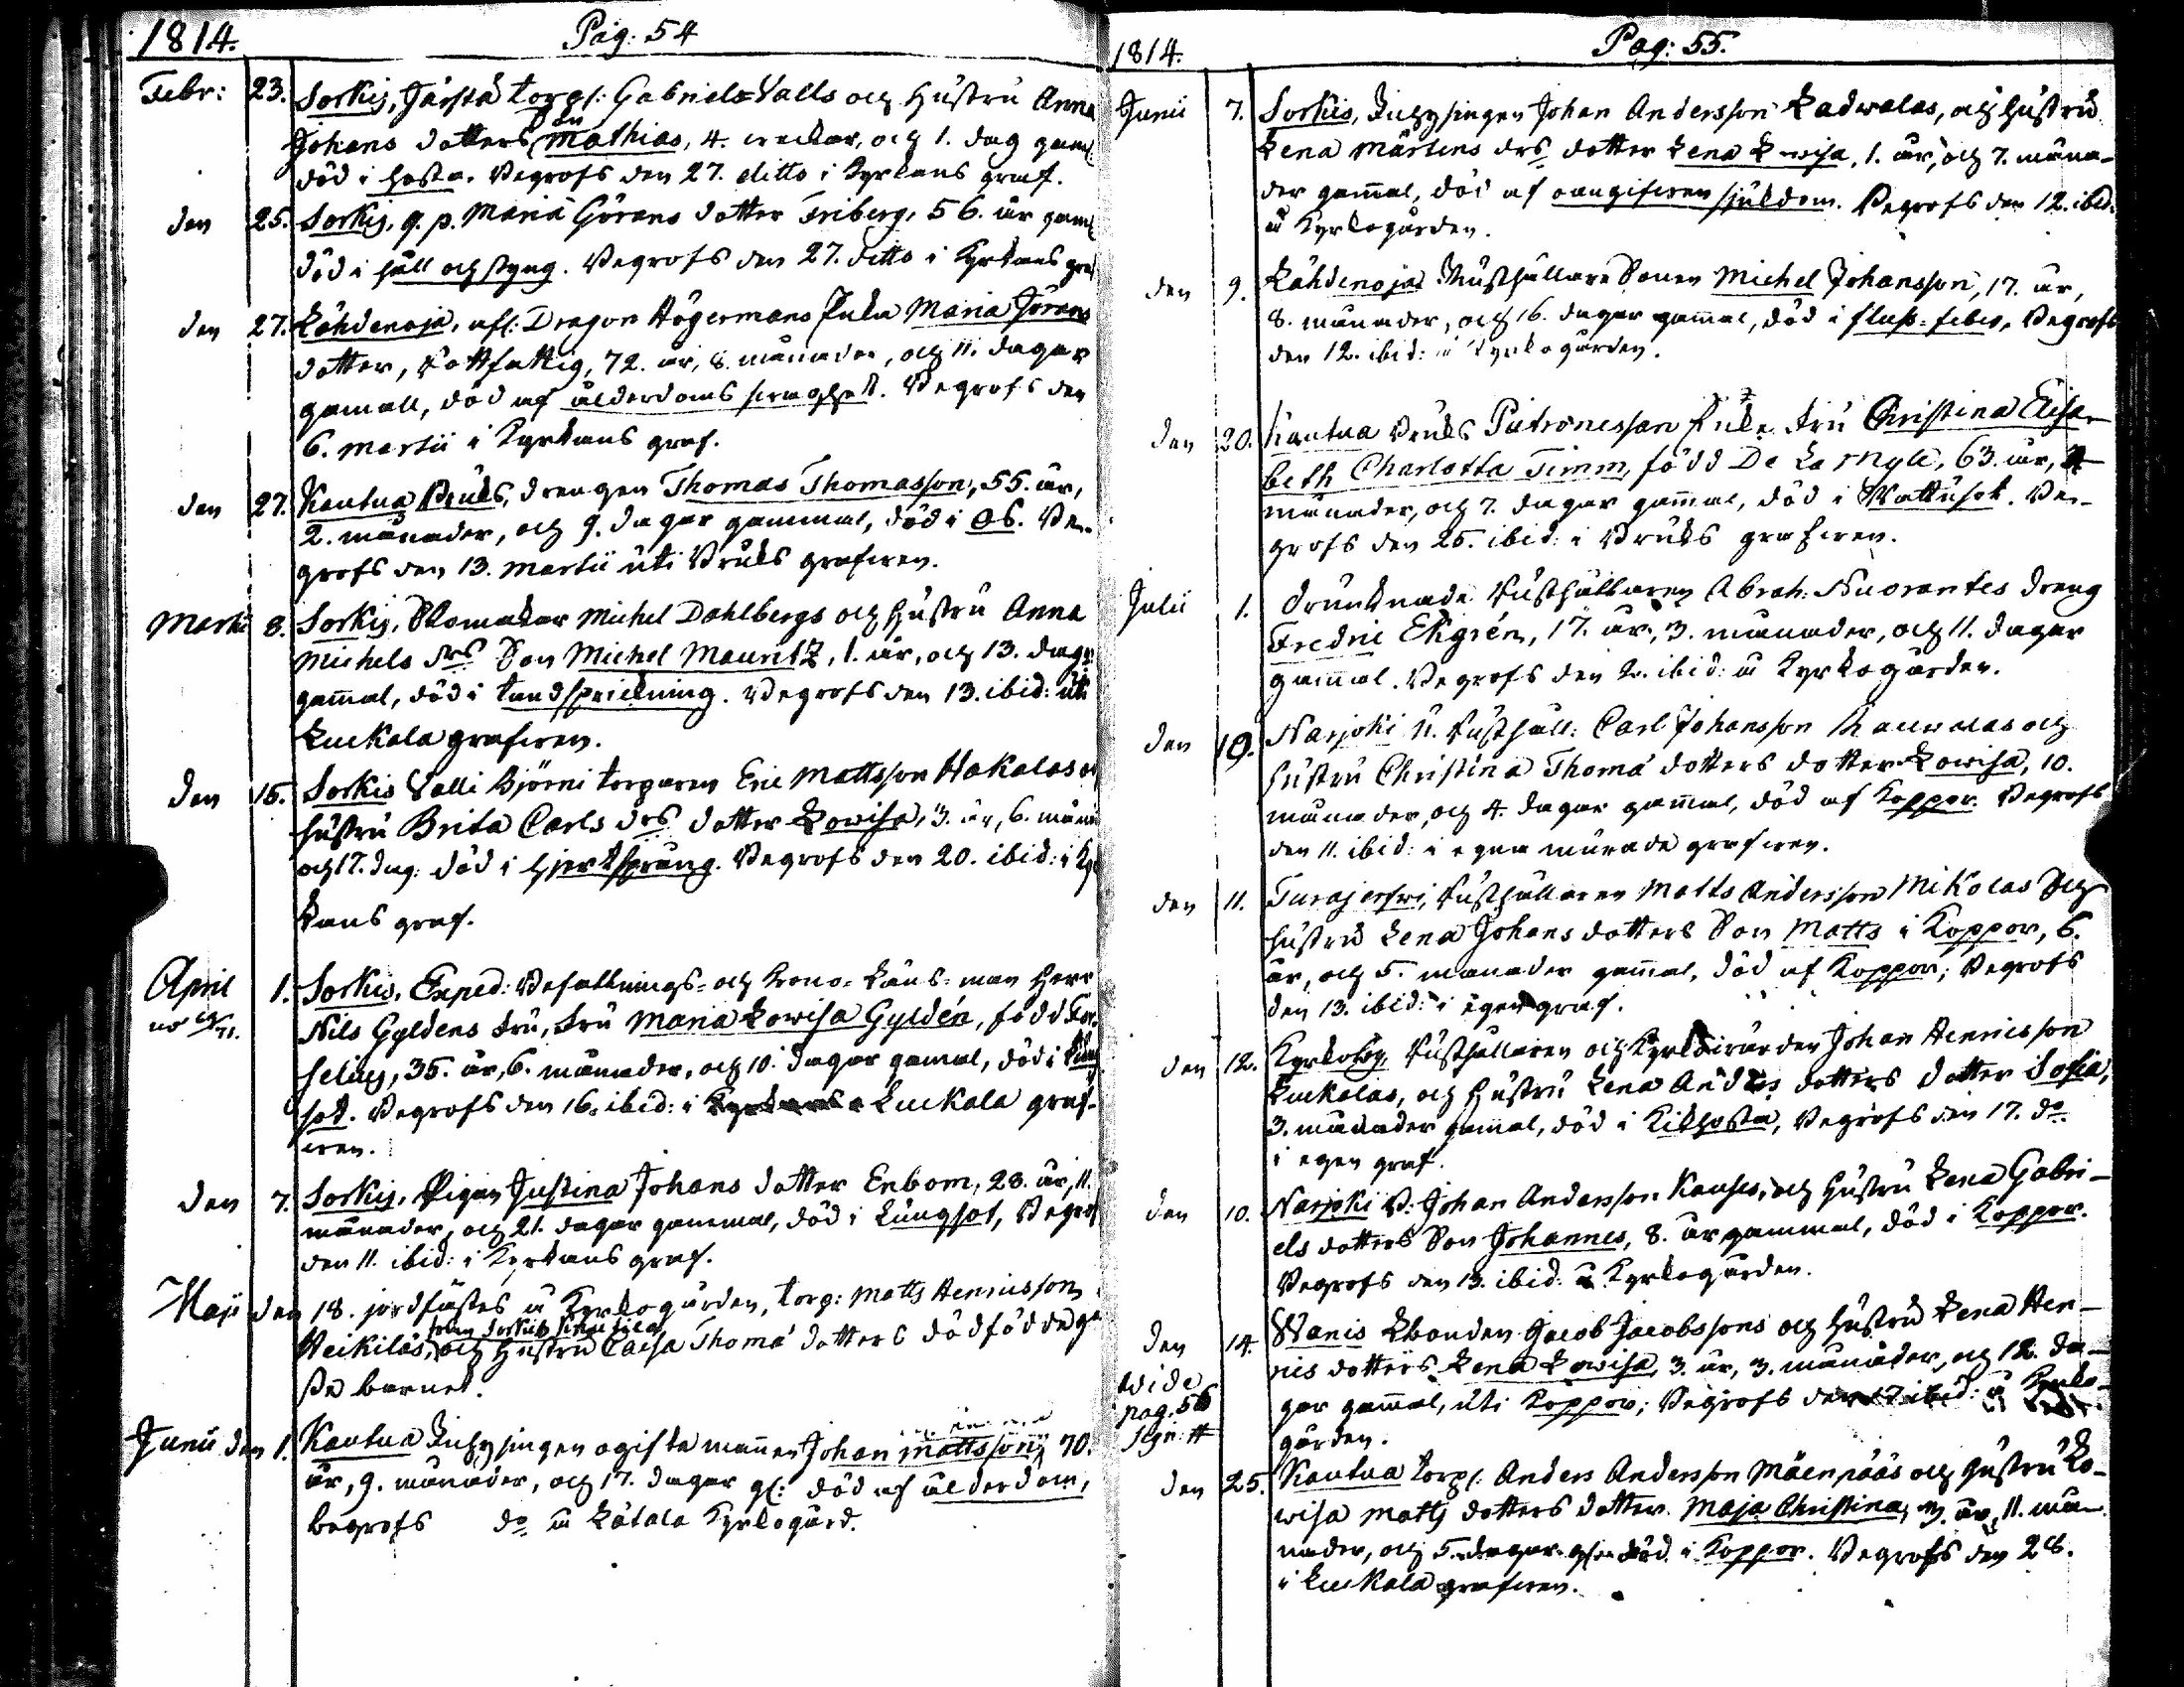 1814. Pag: 54
Febr: 23. Sorkis, Jässä torp: Gabriels Valls och Hustru Anna
Johans dotters Son Mathias, 4. weckor, och 1. dag gaml:
död i hosta. Begrofs den 27. ditto i Kyrkans graf.
den 25. Sorkis, q. p. Maria Görans dotter Friberg, 56. år gaml
död i håll och styng. Begrofs den 27. ditto i Kyrkans graf
den 27. Lähdenoja, afl: Dragon Högermans Enka Maria Jörans
dotter, Rottfattig, 72. år, 8. månader, och 11. dagar
gamall, död af ålderdoms swaghet. Begrofs den
6. Martii i Kyrkans graf.
den 27. Kautua Bruks, drengen Thomas Thomasson, 55. år,
2. månader, och 9. dagar gammal, död i Be-
grofs den 13. Martii uti Bruks grafwen.
Martii 8. Sorkis, Skomakar Michel Dahlbergs och Hustru Anna
Michels drs Son Michel Mauritz, 1. år, och 13. dagr
gammal, död i tandsprickning. Begrofs den 13. ibid: uti
Luckala grafwen.
den 15. Sorkis Valli Björni torparen Eric Mattsson Hakalas
hustru Brita Carls drs dotter Lowisa, 3. år, 6. mån
och 17. dag: död i hjertsprång. Begrofs den 20. ibid: i Kyr
kans graf.
April 1. Sorkis, Exped: Befallnings- och Krono-Läns-man Herr
Nils Gyldens fru, fru Maria Lowisa Gyldén, född
selius, 35. år, 6. månader, och 10. dagar gamal, död i Lung
sot. Begrofs den 16. ibid: i Luckala graf-
wen.
den 7. Sorkis, Pigan Justina Johans dotter Enbom, 28. år, 11.
månader, och 21. dagar gammal, död i Lungsot, Begrofs
den 11. ibid: i Kyrkans graf.
Maji den 18. jordfästes å Kyrkogården, torp: Matts Henricsson
från Sorkis
Heikiläs, och Hustru Caisa Thomæ dotters dödfödde
barnet.
Junii den 1. Kautua Inhysingen ogifta mannen Johan Mattsson, 70.
år, 9. månader, och 17. dagar gl: död af ålderdom,
begrofs do å Kyrkogård.
1814. Pag: 55.
Junii 7. Sorkis, Inhysingen Johan Andersson Ladwalas, och hustru
Lena Mårtens drs dotter Lena Lowisa, 1. år, och 7. måna-
der gammal, död af oangifwen sjukdom. Begrofs den 12. ibid:
å Kyrkogården.
den 9. Lähdenoja Rusthållare Sonen Michel Johansson, 17. år,
8. månader, och 16. dagar gammal, död i fluss-feber, Begrofs
den 12. ibid: å Kyrkogården.
den 20. Kautua Bruks Patronessan Enke fru Christina Elisa-
beth Charlotta Timm, född De La Myle, 63. år, 4
månader, och 7. dagar gammal, död i Wattusot. Be-
grofs den 25. ibid: i Bruks grafwen.
Julii 1. Drunknade Rusthållaren Abrah: Nuorantes dreng
Fredric Ekgrén, 17. år, 3. månader, och 11. dagar
gammal. Begrofs den ibid: å Kyrkogården.
den 10. Narjoki N. Rusthåll: Carl Johansson och
hustru Christina Thomæ dotters dotter Lowisa, 10.
månader, och 4. dagar gammal, död af Koppor. Begrofs
den 11. ibid: i egna murade grafwen.
den 11. Turajerfwi, Rusthållaren Matts Andersson Mikolas och
hustru Lena Johans dotters Son Matts i Koppor, 6.
år, och 5. månader gammal, död af Koppor; Begrofs
den 13. ibid: i egen graf.
den 12. Kyrkoby, Rusthållaren och Kyrkowärden Johan Henricsson
Luckalas, och hustru Lena Anders dotters dotter Sofia,
3. månader gammal, död i Kikhosta, Begrofs den 17. do
i egen graf.
den 10. Narjoki B: Johan Andersson Kauses, och hustru Lena Gabri-
els dotters Son Johannes, 8. år gammal, död i Koppor.
Begrofs den 13. ibid: å Kyrkogården.
den 14. Wanis Lbonden Jacob Jacobssons och hustru Lena Hen-
rics dotters Lena Lowisa, 3. år, 3. månader, och 12. da-
wide pag. 56
gar gammal, uti Koppor; Begrofs den 17 ibid: å Kyrko-
gården.
den 25. Kautua torp: Anders Andersson Mäenpääs och hustru Lo-
wisa Matts dotters dotter Maja Christina, år, 11. må-
nader, och 5. dagar död i Koppor. Begrofs den 28.
i Luckala grafwen.